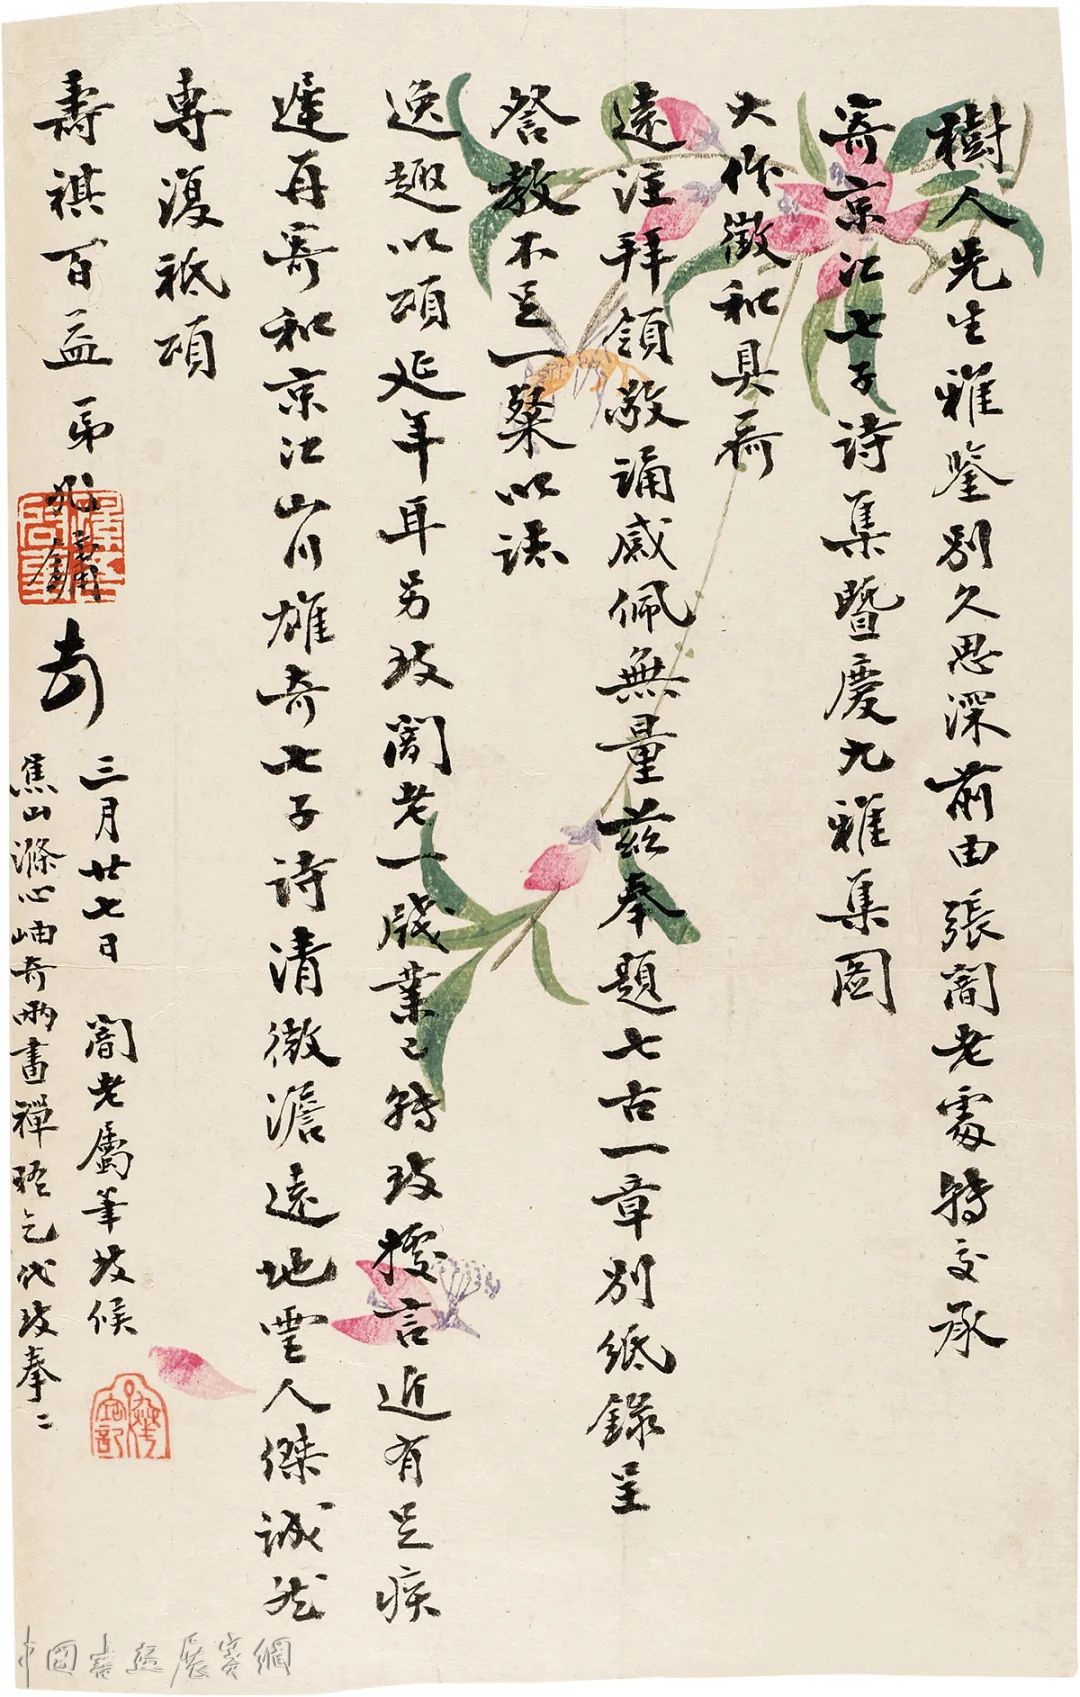 樹人先生雅鑒別久思深前由張闇老處轉交承
寄京江七子詩集暨慶九雅集圖
大作徵和具荷
遠注拜領敬誦感佩無量茲奉題七古一章別紙錄呈
詧教不足一粲以誌
逸趣以頌延年耳另致闇老一牋業已轉致據言近有足疾
遲再寄和京江山川雄奇七子詩清微澹遠地靈人傑誠然
專復祗頌
壽祺百益 弟 鏞 頓
三月廿七日 闇老屬筆致候
焦山滌心岫奇兩畫禪晤乞代致奉
中国书法展赛网